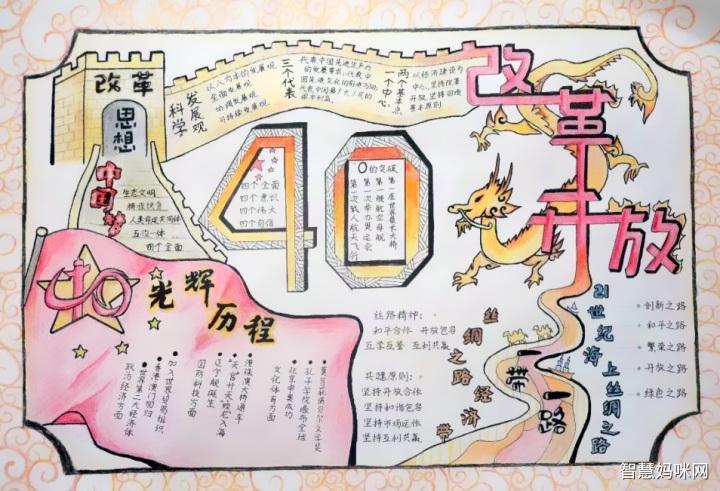 改革
思想
中国梦
生态文明
精准扶贫
人类命运共同体
五位一体
四个全面
科学
发展观
以人为本的发展观
全面发展观
协调发展观
可持续发展观
三个代表
代表中国先进生产力
的发展要求、代表中
国先进文化的前进方向
代表中国最广大人民的
根本利益
一个中心、
两个基本点
以经济建设为
中心,坚持改革
开放,坚持四项
基本原则
改革开放
40
四个全面
四个意识
四个伟大
四个自信
0的突破
第一座世界最长大桥
第一艘航空母舰
第一次举办奥运会
第一次载人航天飞行
40
光辉历程
莫言获诺贝尔文学奖
孔子学院遍布全球
北京申奥成功
文化体育方面
港珠澳大桥通车
"天宫"升天"蛟龙"入海
辽宁舰诞生
国防科技方面
加入世界贸易组织
香港澳门回归
世界第二大经济体
政治经济方面
丝路精神:
和平合作 开放包容
互学互鉴 互利共赢
共建原则:
坚持开放合作
坚持和谐包容
坚持市场运作
坚持互利共赢
丝绸之路经济带
一带一路
21世纪海上丝绸之路
创新之路
和平之路
繁荣之路
开放之路
绿色之路
智慧妈咪网